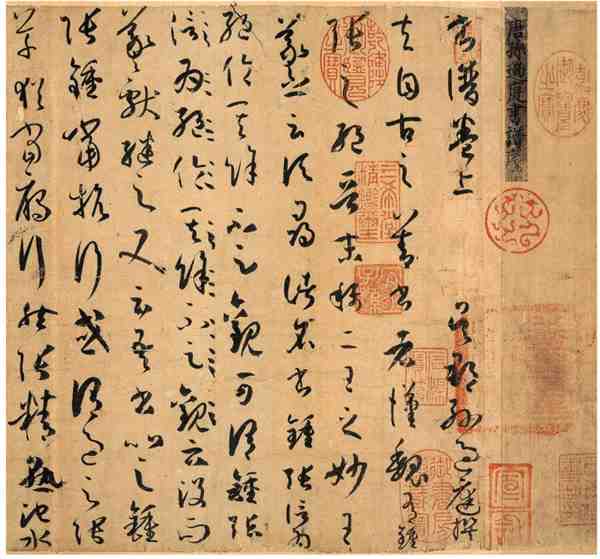 唐孫過庭書譜
書譜卷上 吳郡孫過庭撰
夫自古之善書者漢魏有鍾
張之絕晉末稱二王之妙王
羲之云頃尋諸名書鍾張信為
絕倫其餘不足觀可謂鍾張
信為絕倫其餘不足觀云沒而
羲獻繼之又云吾書比之鍾
張鍾當抗行或謂過之張
草猶當雁行然張精熟池水